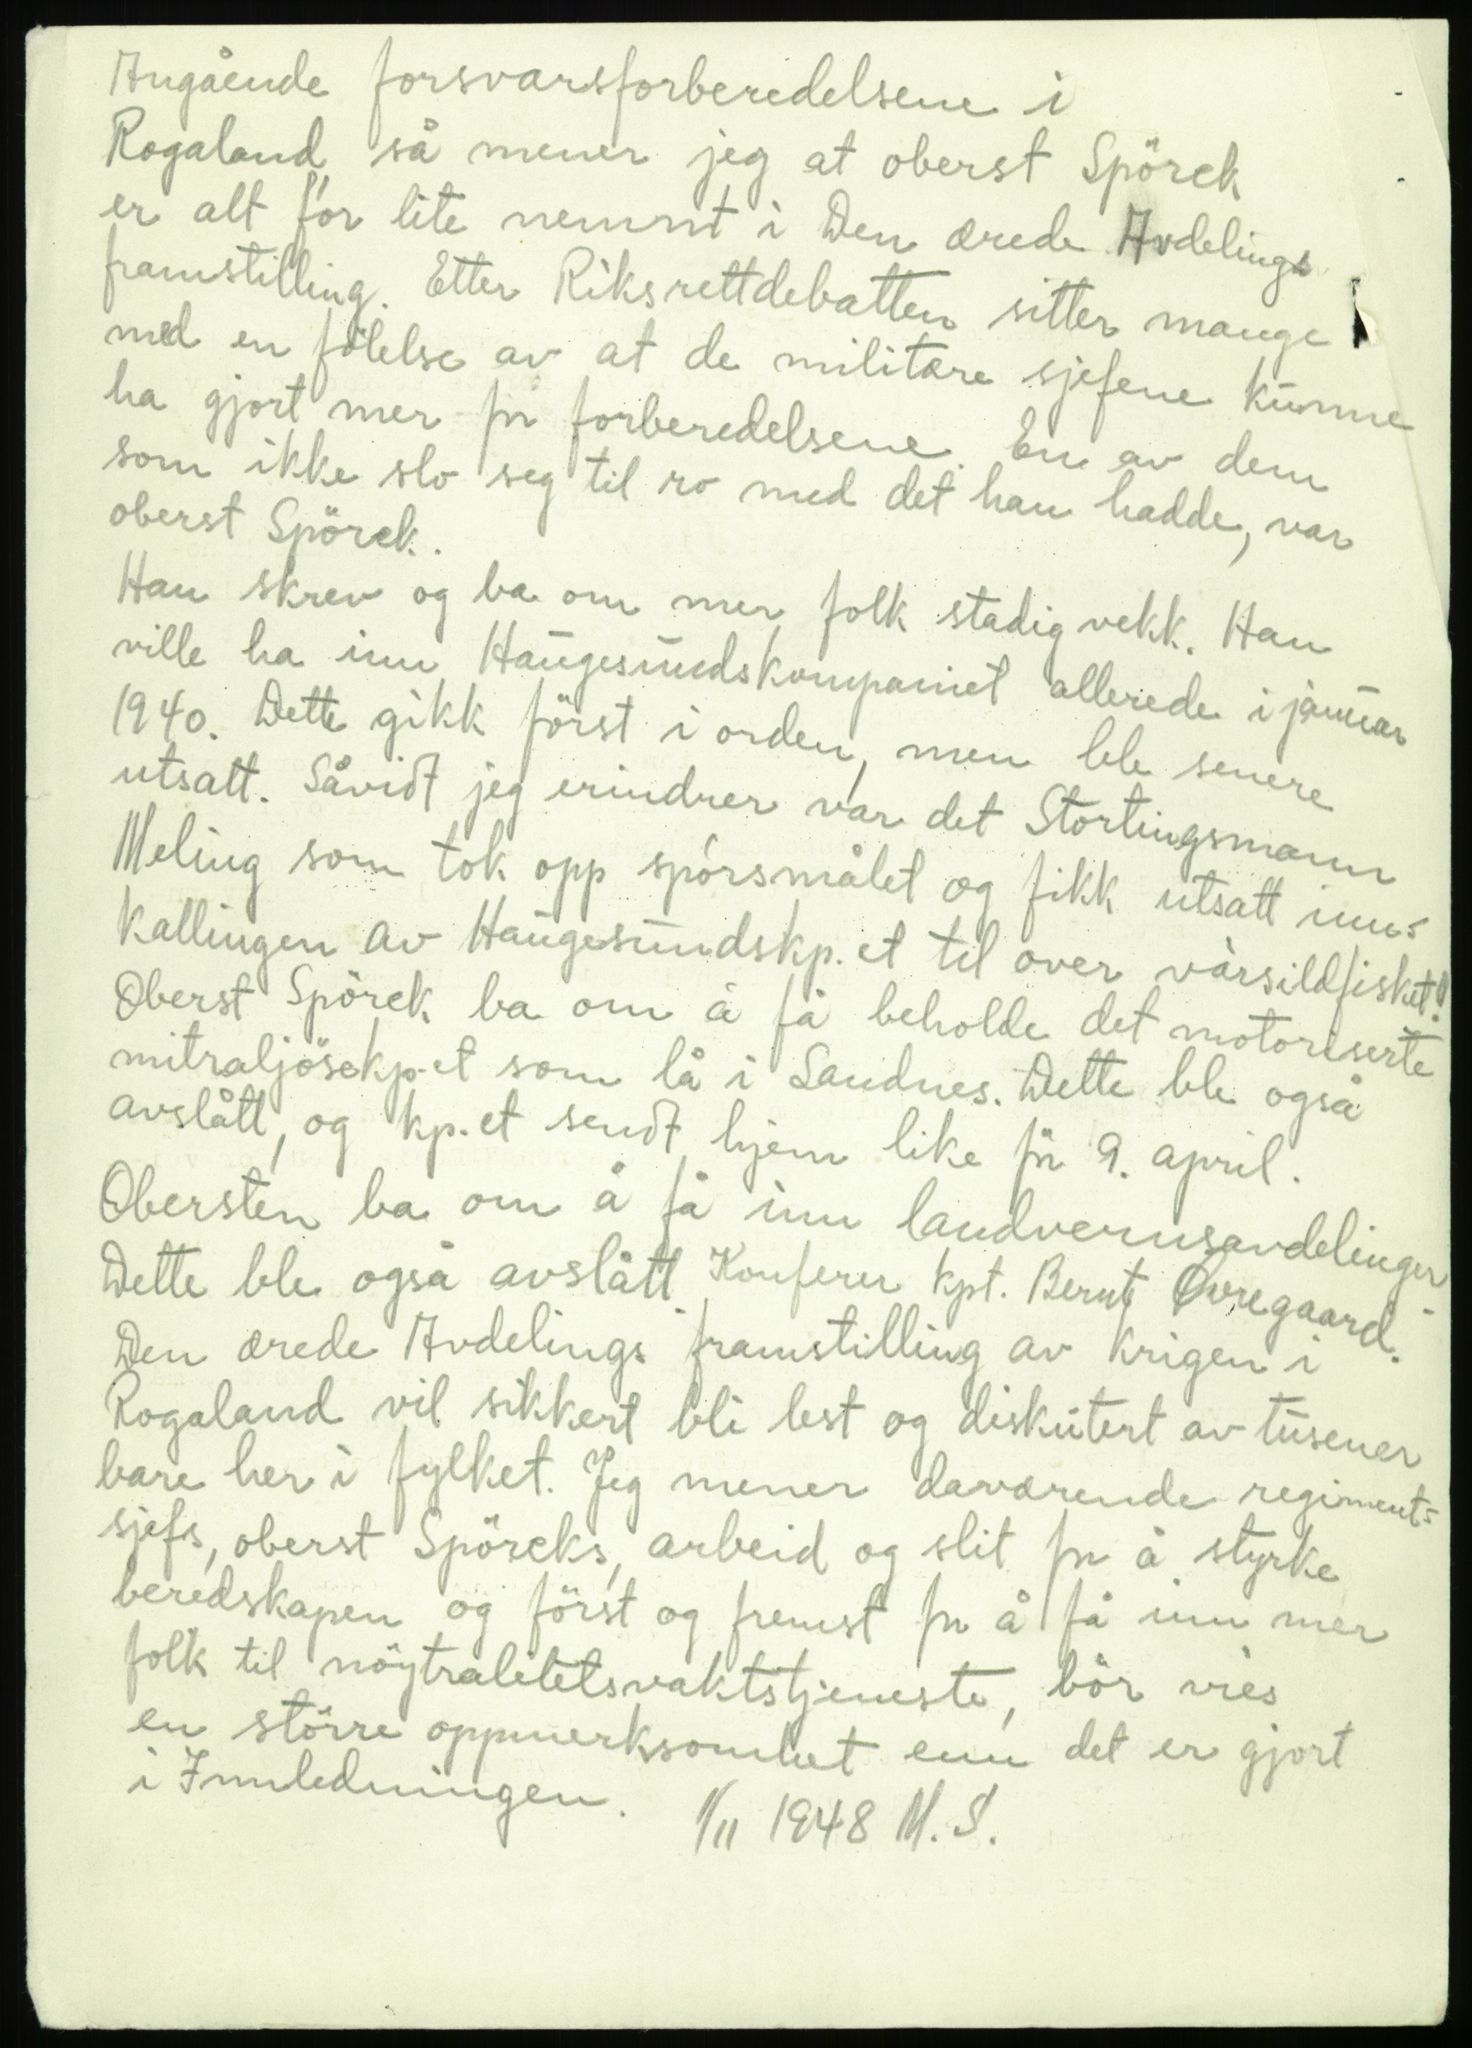 Angående forsvarsforberedelsene i
Rogaland, så mener jeg at oberst Spörck
er alt for lite nemnt i Den ærede Avdelings
framstilling. Etter Riksrettdebatten sitter mange
med en fölelse av at de militære sjefene kunne
ha gjort mer for forberedelsene. En av dem
som ikke slo seg til ro med det han hadde, var
oberst Spörck.
Han skrev og ba om mer folk stadig vekk. Han
ville ha inn Haugesundskompaniet allerede i januar
1940. Dette gikk först i orden, men ble senere
utsatt. Såvidt jeg erindrer var det Stortingsmann
Meling som tok opp spörsmålet og fikk utsatt inn-
kallingen av Haugesundskp.et til over vårsildfisket!
Oberst Spörck ba om å få beholde det motoriserte
mitraljösekp.et som lå i Sandnes. Dette ble også
avslått, og kp.et sendt hjem like för 9. april.
Obersten ba om å få inn landvernsavdelinger.
Dette ble også avslått. Konferer kpt. Bernt Övregaard.
Den ærede Avdelings framstilling av krigen i
Rogaland vil sikkert bli lest og diskutert av tusener
bare her i fylket. Jeg mener daværende regiments-
sjefs, oberst Spörcks, arbeid og slit for å styrke
beredskapen og först og fremst for å få inn mer
folk til nöytralitetsvaktstjeneste, bör vies
en större oppmerksomhet enn det er gjort
i Innledningen. 1/11 1948 M. S.